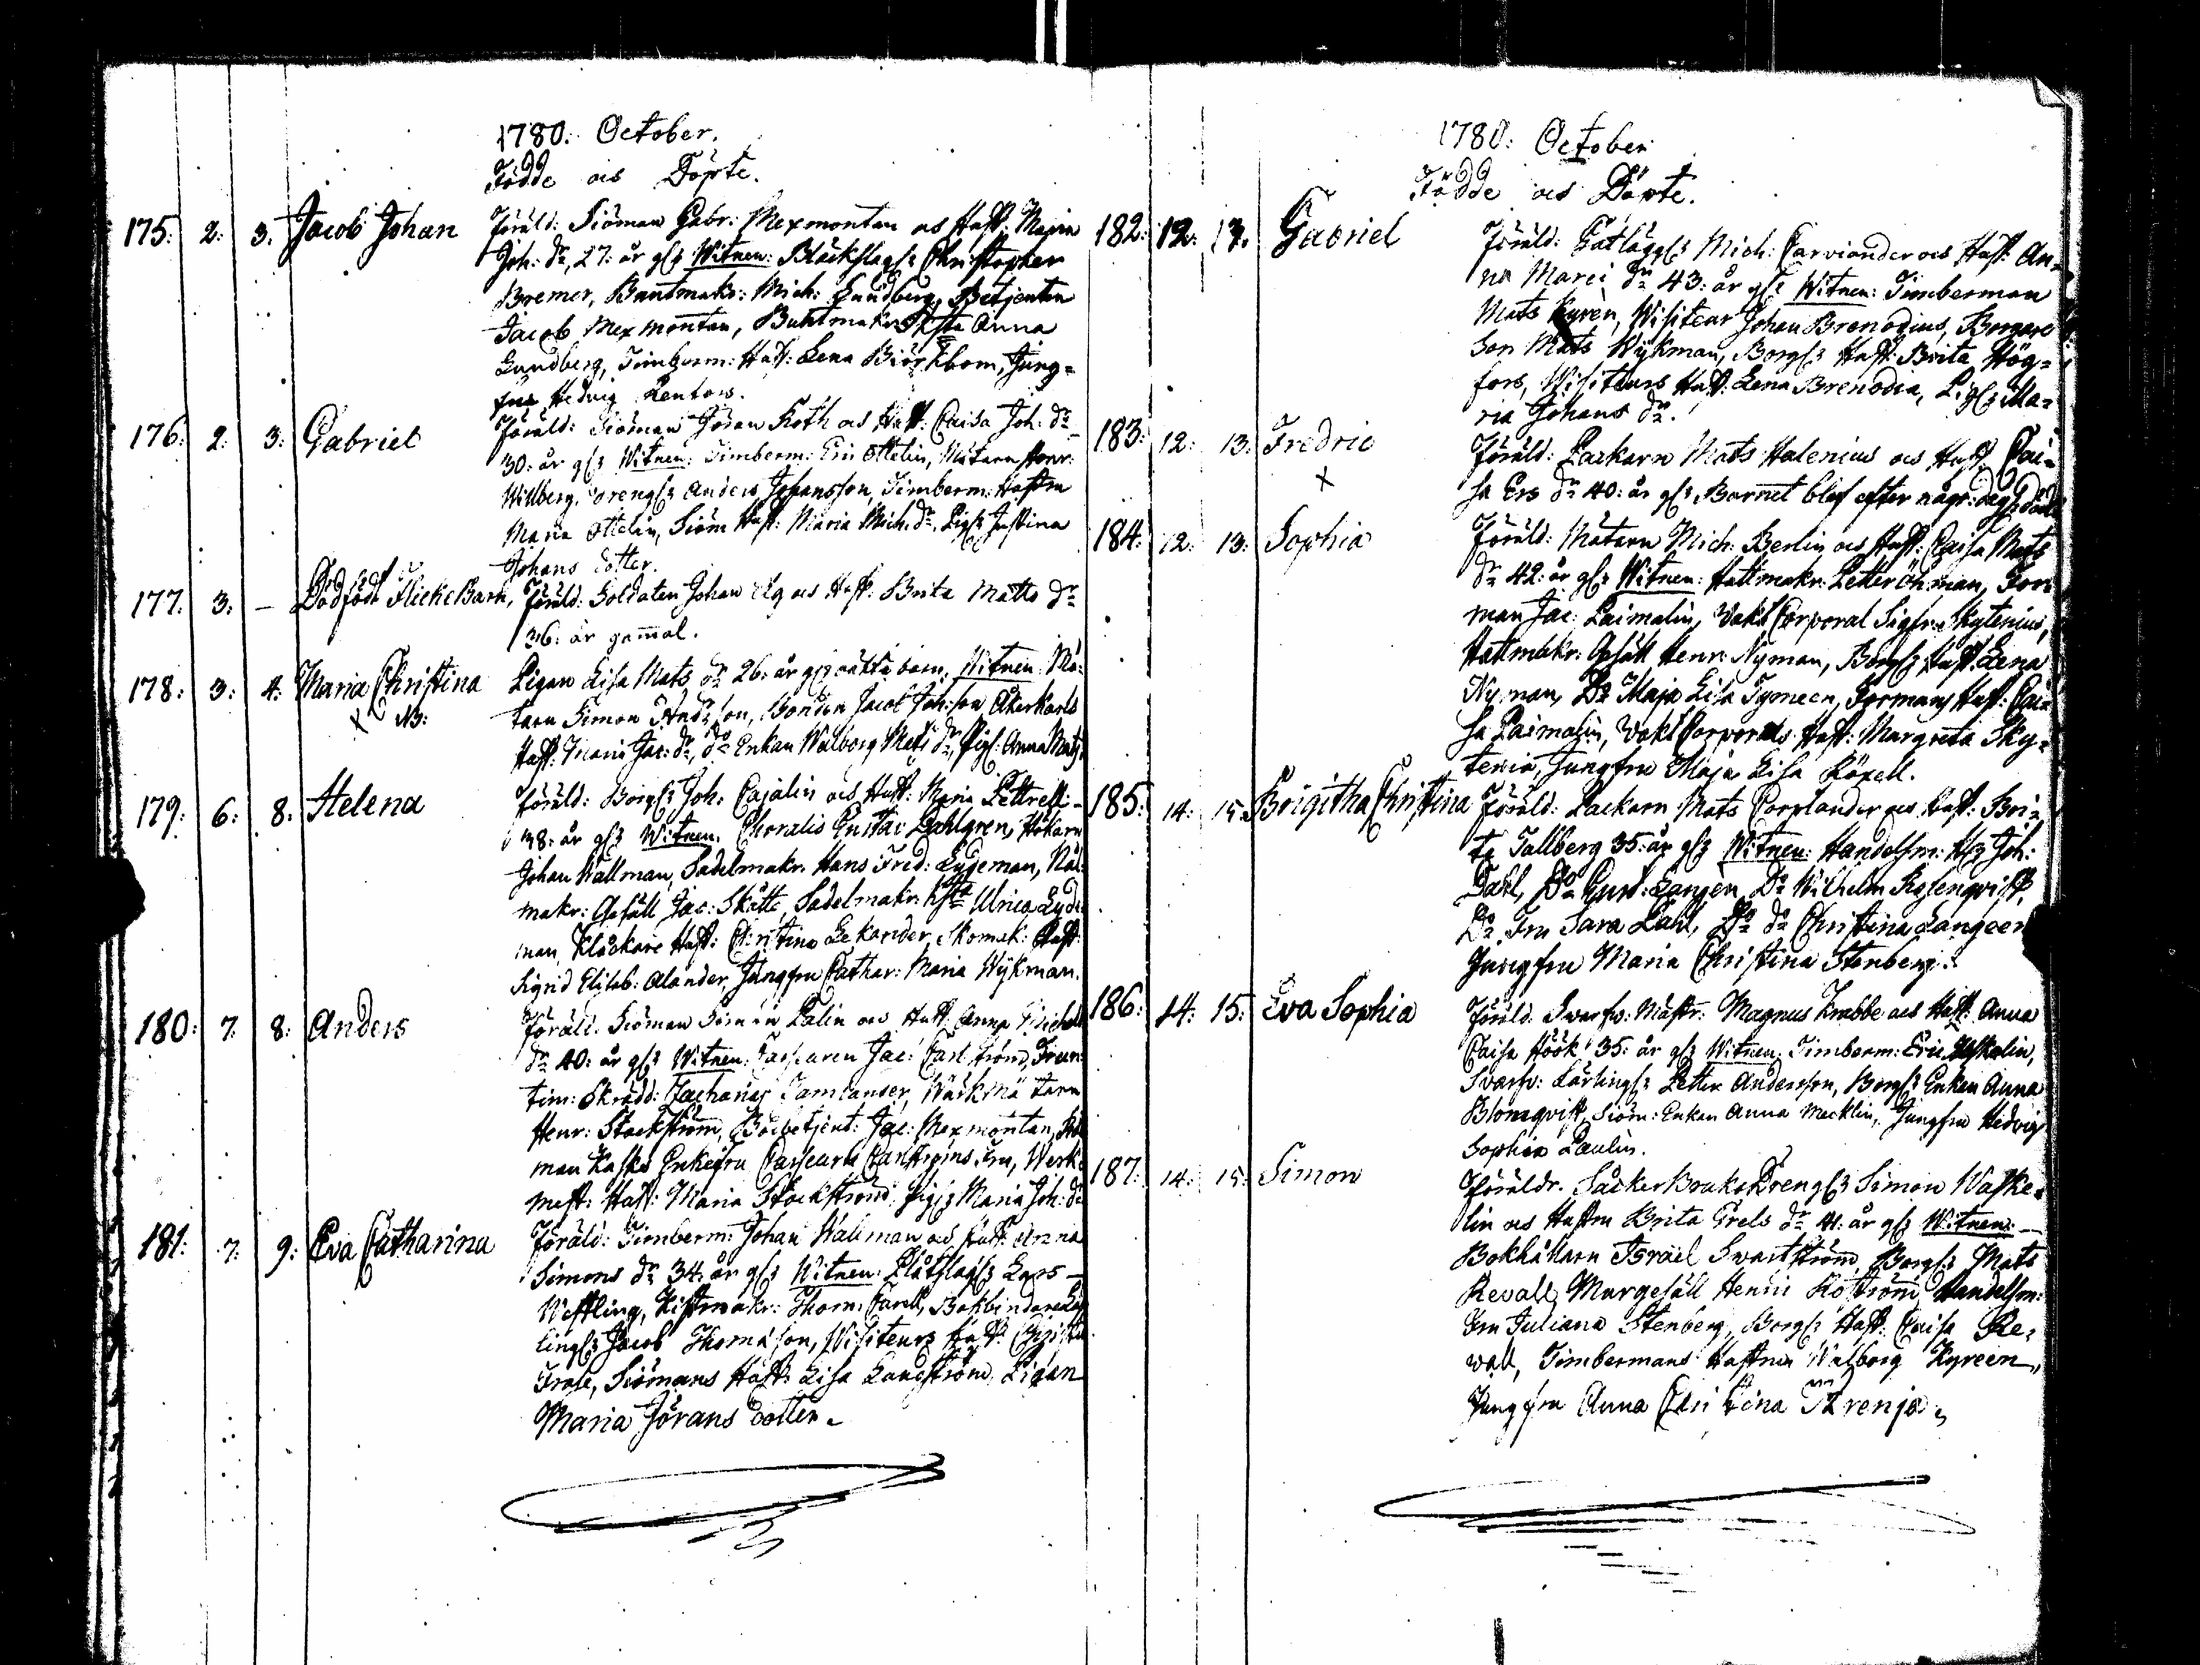 1780. October.
Födde och Döpte.
175: 2: 3. Jacob Johan Föräld: Siöman Gabr: Mexmontan och Hust: Maria
Joh: dr, 27: år gl: Witnen: Bläckslag: Christopher
Bremer, Buntmakr: Mich: Lundberg, Betjenten
Jacob Mexmontan, Buntmakr Anna
Lundberg, Timberm: Hust: Lena Biörkbom, Jung=
fru Hedvig Kentors.
176: 2: 3: Gabriel Föräld: Siöman Jöran Roth och Hust: Caisa Joh: dr
30: år gl: Witnen: Timberm: Eric Ottelin, Mätarn Henr:
Willberg, Drengs: Anders Johansson, Timberm: Hustru
Maria Ottelin, Siöm Hust: Maria Mich: dr, Pigs: Justina
Johans dotter.
177: 3: — Dödfödt Flicke Barn, Föräld: Soldaten Johan Elg och Hust: Brita Matts dr
36: år gamal.
178: 3: 4: Maria Christina Pigan Lisa Mats dr 26: år gl: oäkta barn, Witnen: Mä=
x NB: tarn Simon Andersson, Bonden Jacob Joh:son Åkerkarls
Hust: Maria Jac: dr, do Enkan Walborg Mats dr, Pigs: Anna Mats
179: 6: 8: Helena Föräld: Borgs: Joh: Cajalin och Hust: Maria Pettrelli
38: år gl: Witnen: Choralis Gustav Dahlgren, Hökarn
Johan Wallman, Sadelmakr: Hans Fred: Lydeman, Nål=
makr: Gesäll Jac: Skätte, Sadelmakr: Ulrica Lyde=
man, Klockare Hust: Christina Lekander, Skomak: Hust:
Sigrid Elisab: Alander, Jungfru Cathar: Maria Wykman.
180: 7: 8: Anders Föräld: Siöman Simon Palin och Hust: Anna Michels
dr 40: år gl: Witnen: Jac: Carlström,
tim: Skrädd: Zacharias Tamlander, Wäskmätarn
Henr: Stockström, Jac: Mexmontan,
man Enkefru Fru, Werk=
mest: Hust: Maria Stockström, Pigs: Maria Joh: dr
181: 7: 9: Eva Catharina Föräld: Timberm: Johan Wallman och Hust: Anna
Simons dr 34: år gl: Witnen: Plåtslags: Lars —
Westling, Kistmakr: Thom: Bokbindare Lär=
lings: Jacob Thomasson, Visiteurs Hust: Christ:
Frase, Siömans Hust: Lisa Landström, Pigan
Maria Jörans dotter.
1780: October
Födde och Döpte.
182: 12: 13. Gabriel Föräld: Mich: Carviander och Hust: An=
na Marci dr 43: år gl: Witnen: Timberman
Mats Kyrèn, Visiteur Johan Brenodius, Borgare
Son Mats Wykman, Borgs: Hust: Brita Hög=
fors, Visiteurs Hust: Lena Brenodia, Pigs: Ma=
ria Johans dr.
183: 12: 13: Fredric Föräld: Packarn Mats Halenius och Hust: Cai=
x sa Ers dr 40: år gl: Barnet blef efter någr: dags död
184: 12: 13: Sophia Föräld: Mätarn Mich: Berlin och Hust: Caisa Mats
dr 42: år gl: Witnen: Hattmakr: Petter Öhman, For=
man Jac: Paimalin, Vakt Corporal Sigfr: Skytenius,
Hattmakr: Gesäll Henr: Nyman, Borgs: Hust: Lena
Nyman, Do Maja Lisa Tymeen, Formans Hust: Cai=
sa Paimalin, Vakt Corporals Hust: Margreta Sky=
tenia, Jungfru Maja Lisa Röxell.
185: 14: 15: Brigitha Christina Föräld: Packarn Mats Corplander och Hust: Bri=
ta Tallberg 35: år gl: Witnen: Handelsm: H: Joh:
Dahl, Do Gust: Langèn, Do Wilhelm
Do Fru Sara Dahl, Do do Christina Langeen
Jungfru Maria Christina Stenberg.
186: 14: 15: Eva Sophia Föräld: Svarfv: Mästr: Magnus Krabbe och Hust: Anna
Caisa Höök 35: år gl: Witnen: Timberm: Eric
Svarfv: Lärlings: Petter Andersson, Borgs: Enkan Anna
Blomqvist, Siöm: Enkan Anna Mecklin, Jungfru Hedvig
Sophia Paulin.
187: 14: 15: Simon Föräldr. Såcker Bruks Drengs: Simon Waske=
lin och Hustru Brita Grels dr 41: år gl: Witnen: —
Bokhållarn Israel Svartström, Borgs: Mats
Revall, Murgesäll Henric Roström, Handelsm:
Fru Juliana Stenberg, Borgs: Hust: Caisa Re=
wall, Timbermans Hustrun Walborg Kyreen,
Jungfru Anna Christina